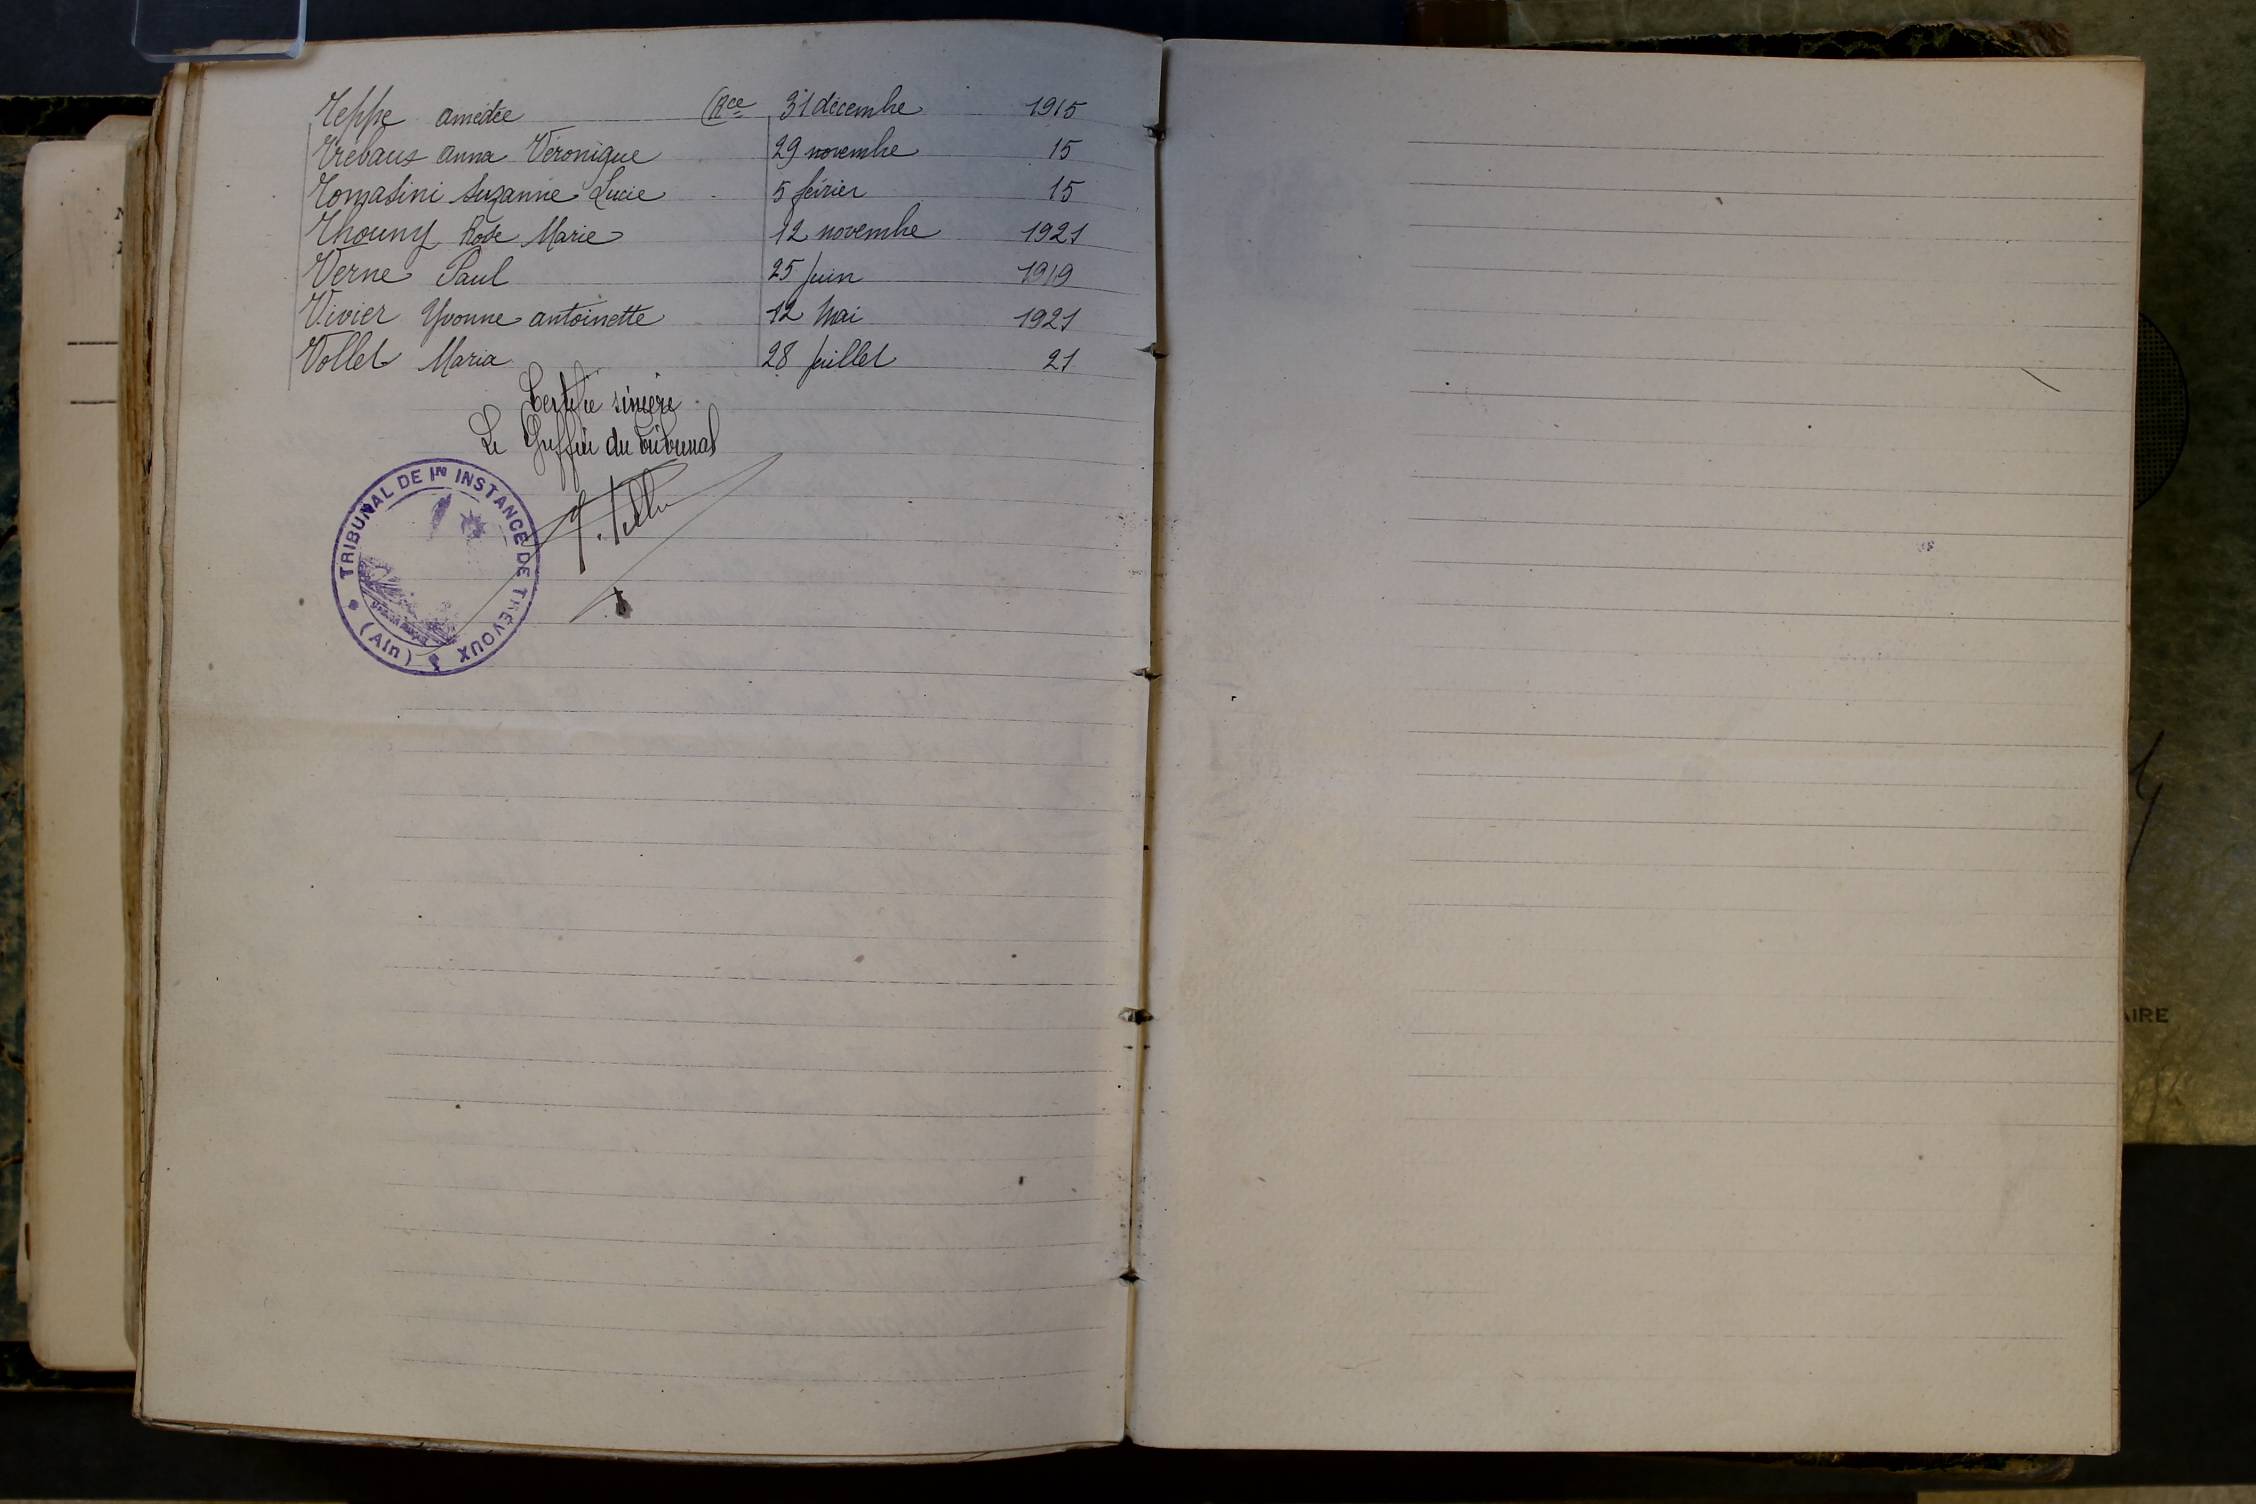 Teppe amédée (Rce 31 décembre 1915
Trébaus anna Véronique 29 novembre 15
Tomasini Suzanne Lucie 5 février 15
Thouny Rose Marie 12 novembre 1921
Verne Paul 25 Juin 1919
Vivier Yvonne antoinette 12 Mai 1921
Vollet Maria 28 Juillet 21
Certifié sincère
Le Greffier du Tribunal
TRIBUNAL DE 1re INSTANCE DE TRÉVOUX
(Ain)
AIRE